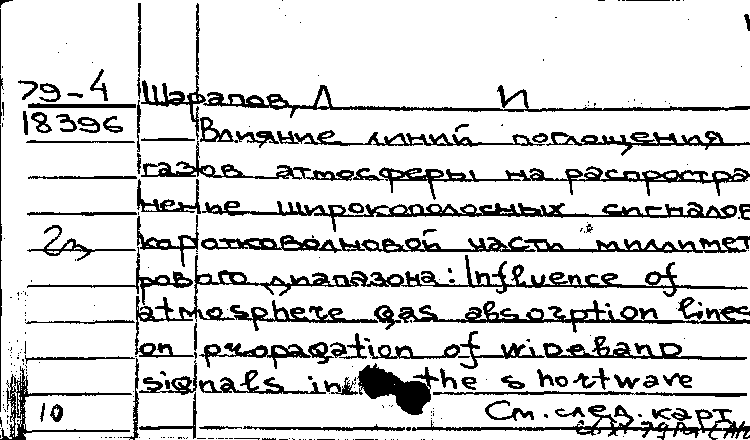 79-4 Шарапов, Л И
18396 Влияние линий поглощения
газов атмосферы на распростра
нение широкополосных сигналов
коротковолновой части миллимет
рового диапазона: Influence of
atmosphere gas absorption lines
on propagation of wideband
signals in the shortwave
10 См. след. карт